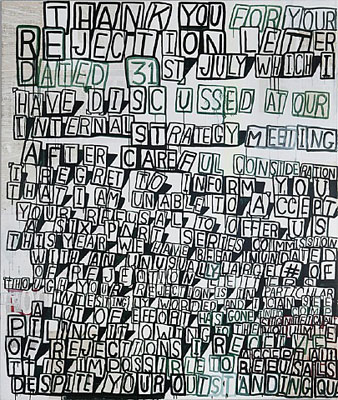 THANK YOU FOR YOUR
REJECTION LETTER
DATED 31ST JULY WHICH I
HAVE DISCUSSED AT OUR
INTERNAL STRATEGY MEETING
AFTER CAREFUL CONSIDERATION
I REGRET TO INFORM YOU
THAT I AM UNABLE TO ACCEPT
YOUR REFUSAL TO OFFER US
A SIX PART SERIES COMMISSION
THIS YEAR WE HAVE BEEN INUNDATED
WITH AN UNUSUALLY LARGE # OF
OF REJECTION
THOUGH YOUR REJECTION IS IN PARTICULAR
INTERESTINGLY WORDED AND I CAN SEE
A LOT OF EFFORT HAS GONE INTO
PILING IT OWING TO THE VOLUME
OF REJECTIONS I REGRET
IT IS IMPOSSIBLE TO ACCEPT ALL REFUSALS
DESPITE YOUR OUTSTANDING QU